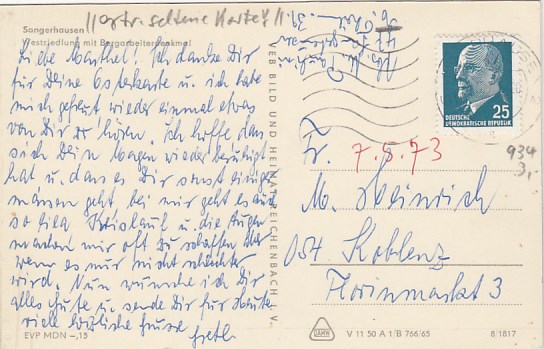 ||extr. seltene Karte! ||
Sangerhausen
Westsiedlung mit Bergarbeiterdenkmal
Liebe Marthel! Ich danke Dir
für Deine Osterkarte u. ich habe
mich gefreut wieder einmal etwas
von Dir zu hören. Ich hoffe dass
sich Dein Magen wieder beruhigt
hat u. dass es Dir sonst einiger-
massen geht. bei mir geht es auch
so Kreislauf u. die Augen
machen mir oft zu schaffen
wenn es nur nicht schlechter
wird. Nun wünsche ich Dir
alles Gute u. sende Dir für heute
viele herzliche Grüsse
EVP MDN –,15
VEB BILD UND HEIMAT REICHENBACH I. V.
25
DEUTSCHE
DEMOKRATISCHE REPUBLIK
934
3,-
Fr. 7.5.73
M. Heinrich
054 Koblenz
Florinmarkt 3
DAMW
V 11 50 A 1/B 766/65
8/1817